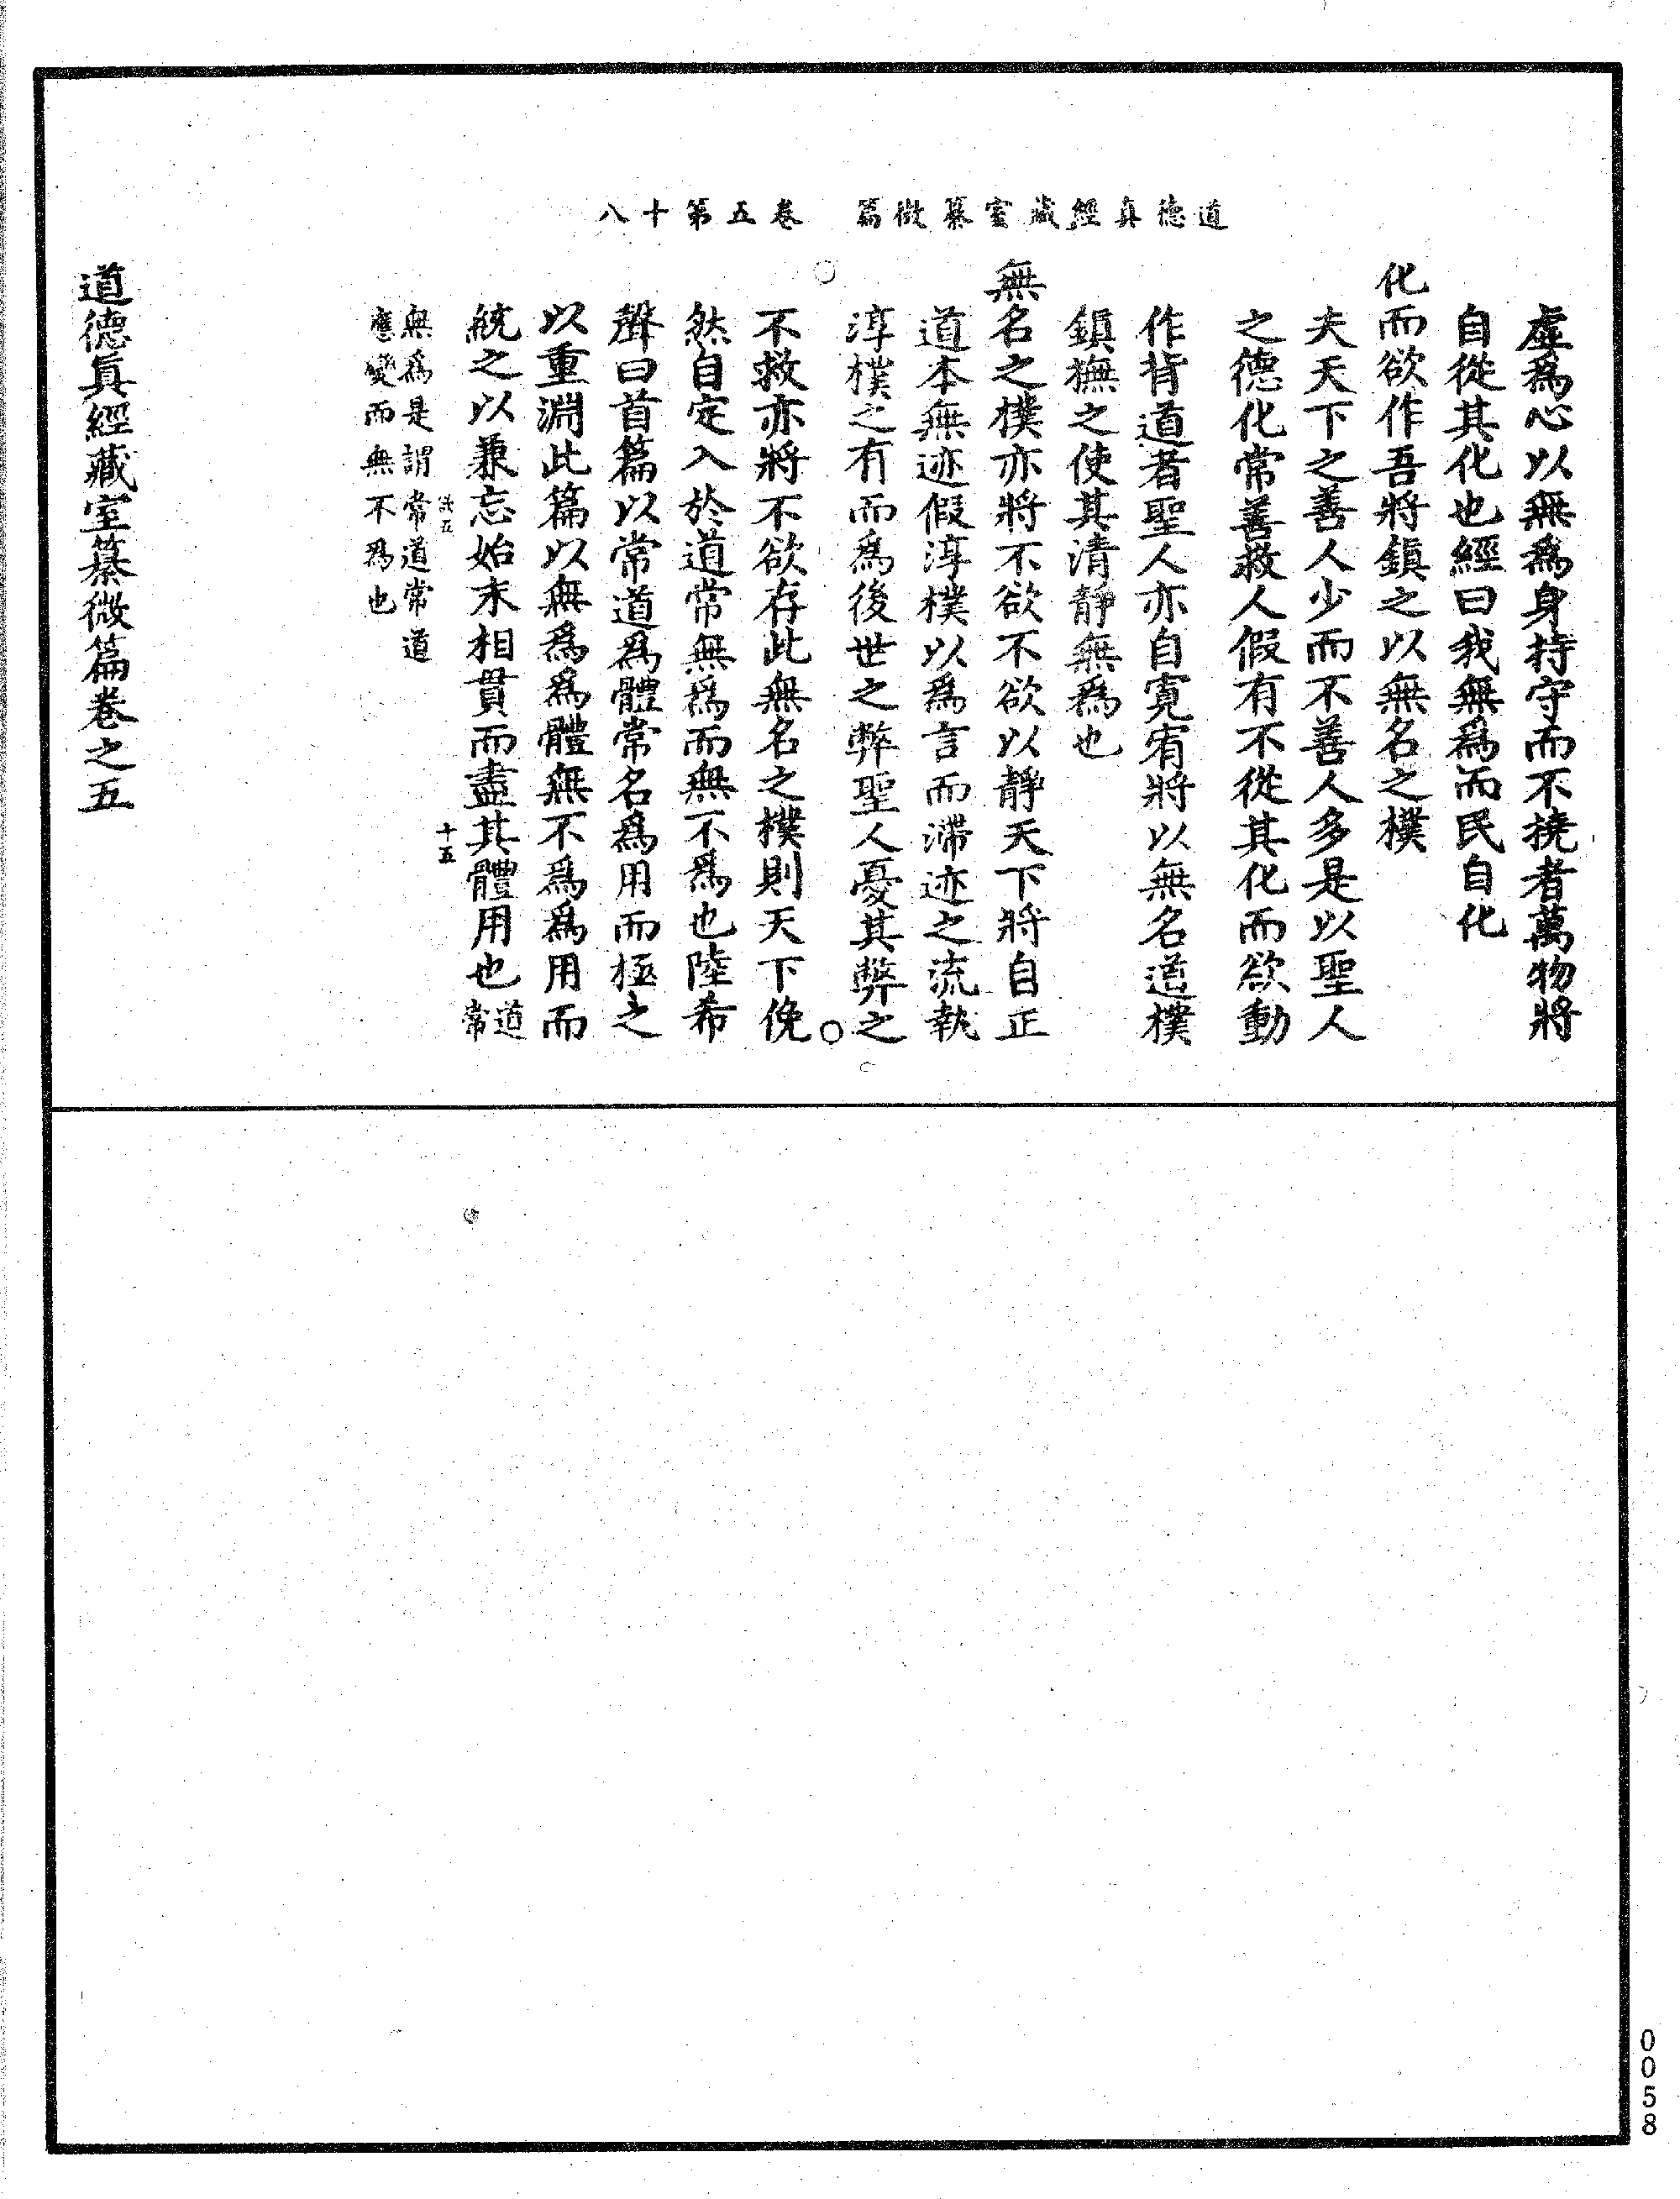 道德真經藏室纂微篇　卷五第十八
虛爲心以無爲身持守而不撓者萬物將
自從其化也經曰我無爲而民自化
化而欲作吾將鎮之以無名之樸
夫天下之善人少而不善人多是以聖人
之德化常善救人假有不從其化而欲動
作背道者聖人亦自寬宥將以無名道樸
鎮撫之使其清靜無爲也
無名之樸亦將不欲不欲以靜天下將自正
道本無迹假淳樸以爲言而滯迹之流執
淳樸之有而爲後世之弊聖人憂其弊之
不救亦將不欲存此無名之樸則天下俛
然自定入於道常無爲而無不爲也陸希
聲曰首篇以常道爲體常名爲用而極之
以重淵此篇以無爲爲體無不爲爲用而
統之以兼忘始末相貫而盡其體用也道常
十五
無爲是謂常道常道
應變而無不爲也
道德眞經藏室纂微篇卷之五
0058